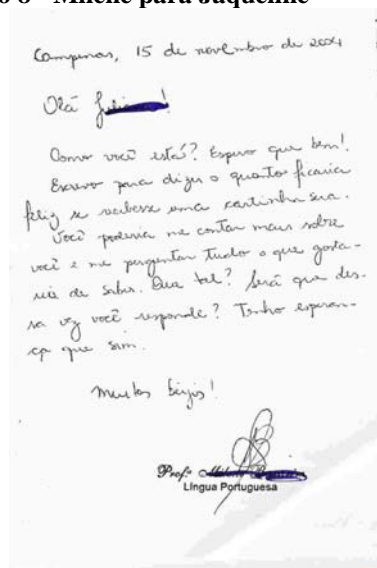 o 8 - Milene para Jaqueline
Campinas, 15 de novembro de 2004
Olá
Como você está? Espero que bem!
Escrevo para dizer o quanto ficaria
feliz se recebesse uma cartinha sua.
Você poderia me contar mais sobre
você e me perguntar tudo o que gosta-
ria de saber. Que tal? Será que des-
sa vez você responde? Tenho esperan-
ça que sim.
Muitos beijos!
Profª
Língua Portuguesa